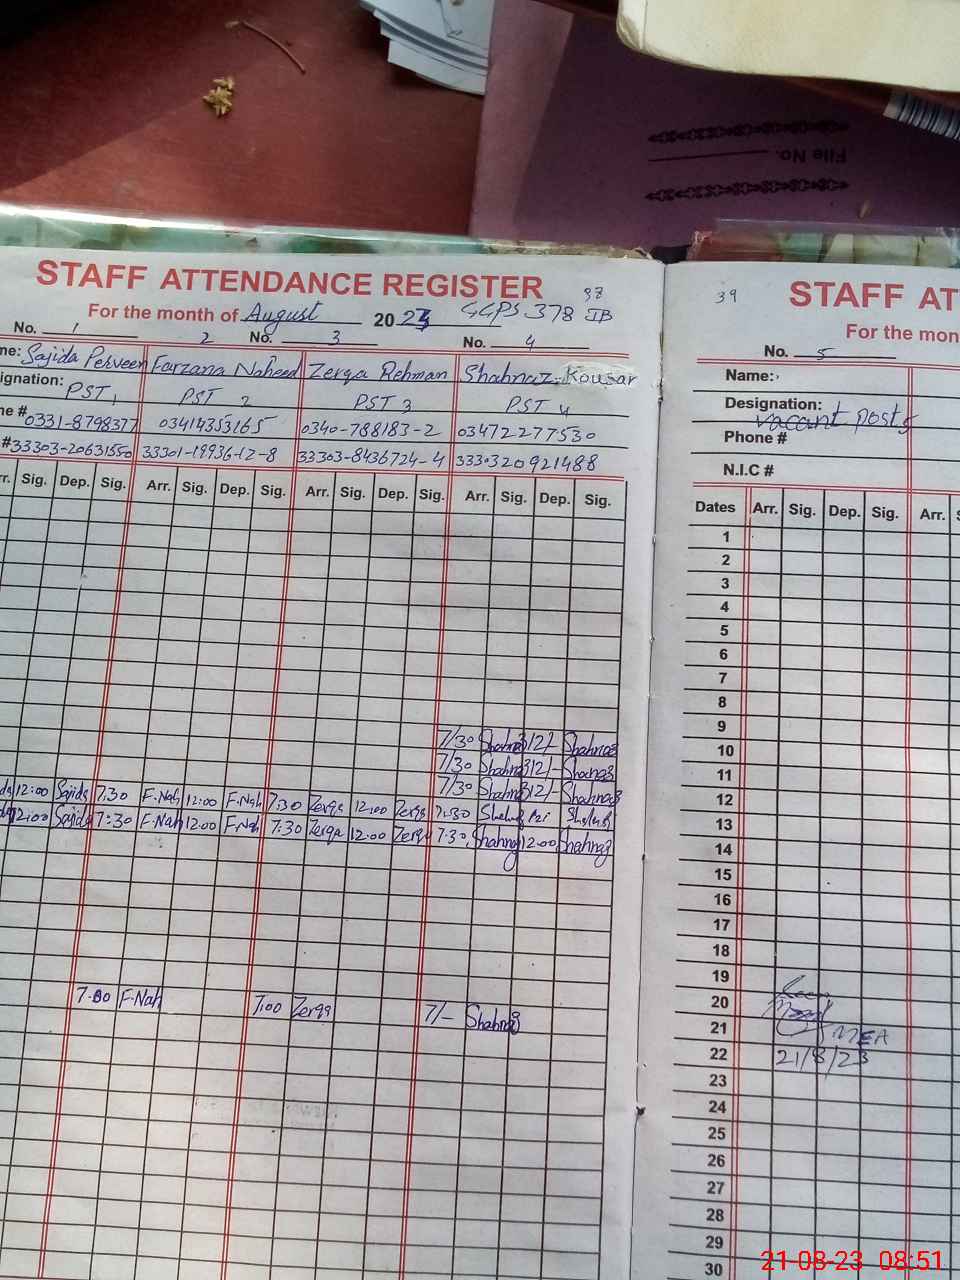 File No.
STAFF ATTENDANCE REGISTER
For the month of August 2023 GGPS 378 JB
No. 1 2 No. 3 No. 4
me: Sajida Perveen Farzana Naheed Zerqa Rehman Shahnaz Kousar
signation: PST 1 PST 2 PST 3 PST 4
ne # 0331-8798377 03414353165 0340-788183-2 03472277530
# 33303-20631550 33301-19936-12-8 33303-8436724-4 333032092148 8
rr. Sig. Dep. Sig. Arr. Sig. Dep. Sig. Arr. Sig. Dep. Sig. Arr. Sig. Dep. Sig.
7/30 Shahnaz 12/- Shahnaz
7/30 Shahnaz 12/- Shahnaz
7/30 Shahnaz 12/- Shahnaz
12:00 Sajida 7:30 F.Nah 12:00 F.Nah 7:30 Zerqa 12:00 Zerqa 7:30
12:00 Sajida 7:30 F.Nah 12:00 F.Nah 7:30 Zerqa 12:00 Zerqa 7:30 Shahnaz 12:00 Shahnaz
7:00 F.Nah 7:00 Zerqa 7/- Shahnaz
39
STAFF AT
For the mon
No. 5
Name:
Designation: vacant posts
Phone #
N.I.C #
Dates Arr. Sig. Dep. Sig. Arr. S
1
2
3
4
5
6
7
8
9
10
11
12
13
14
15
16
17
18
19
20
21 MEA
22 21/8/23
23
24
25
26
27
28
29
30
21-08-23 08:51